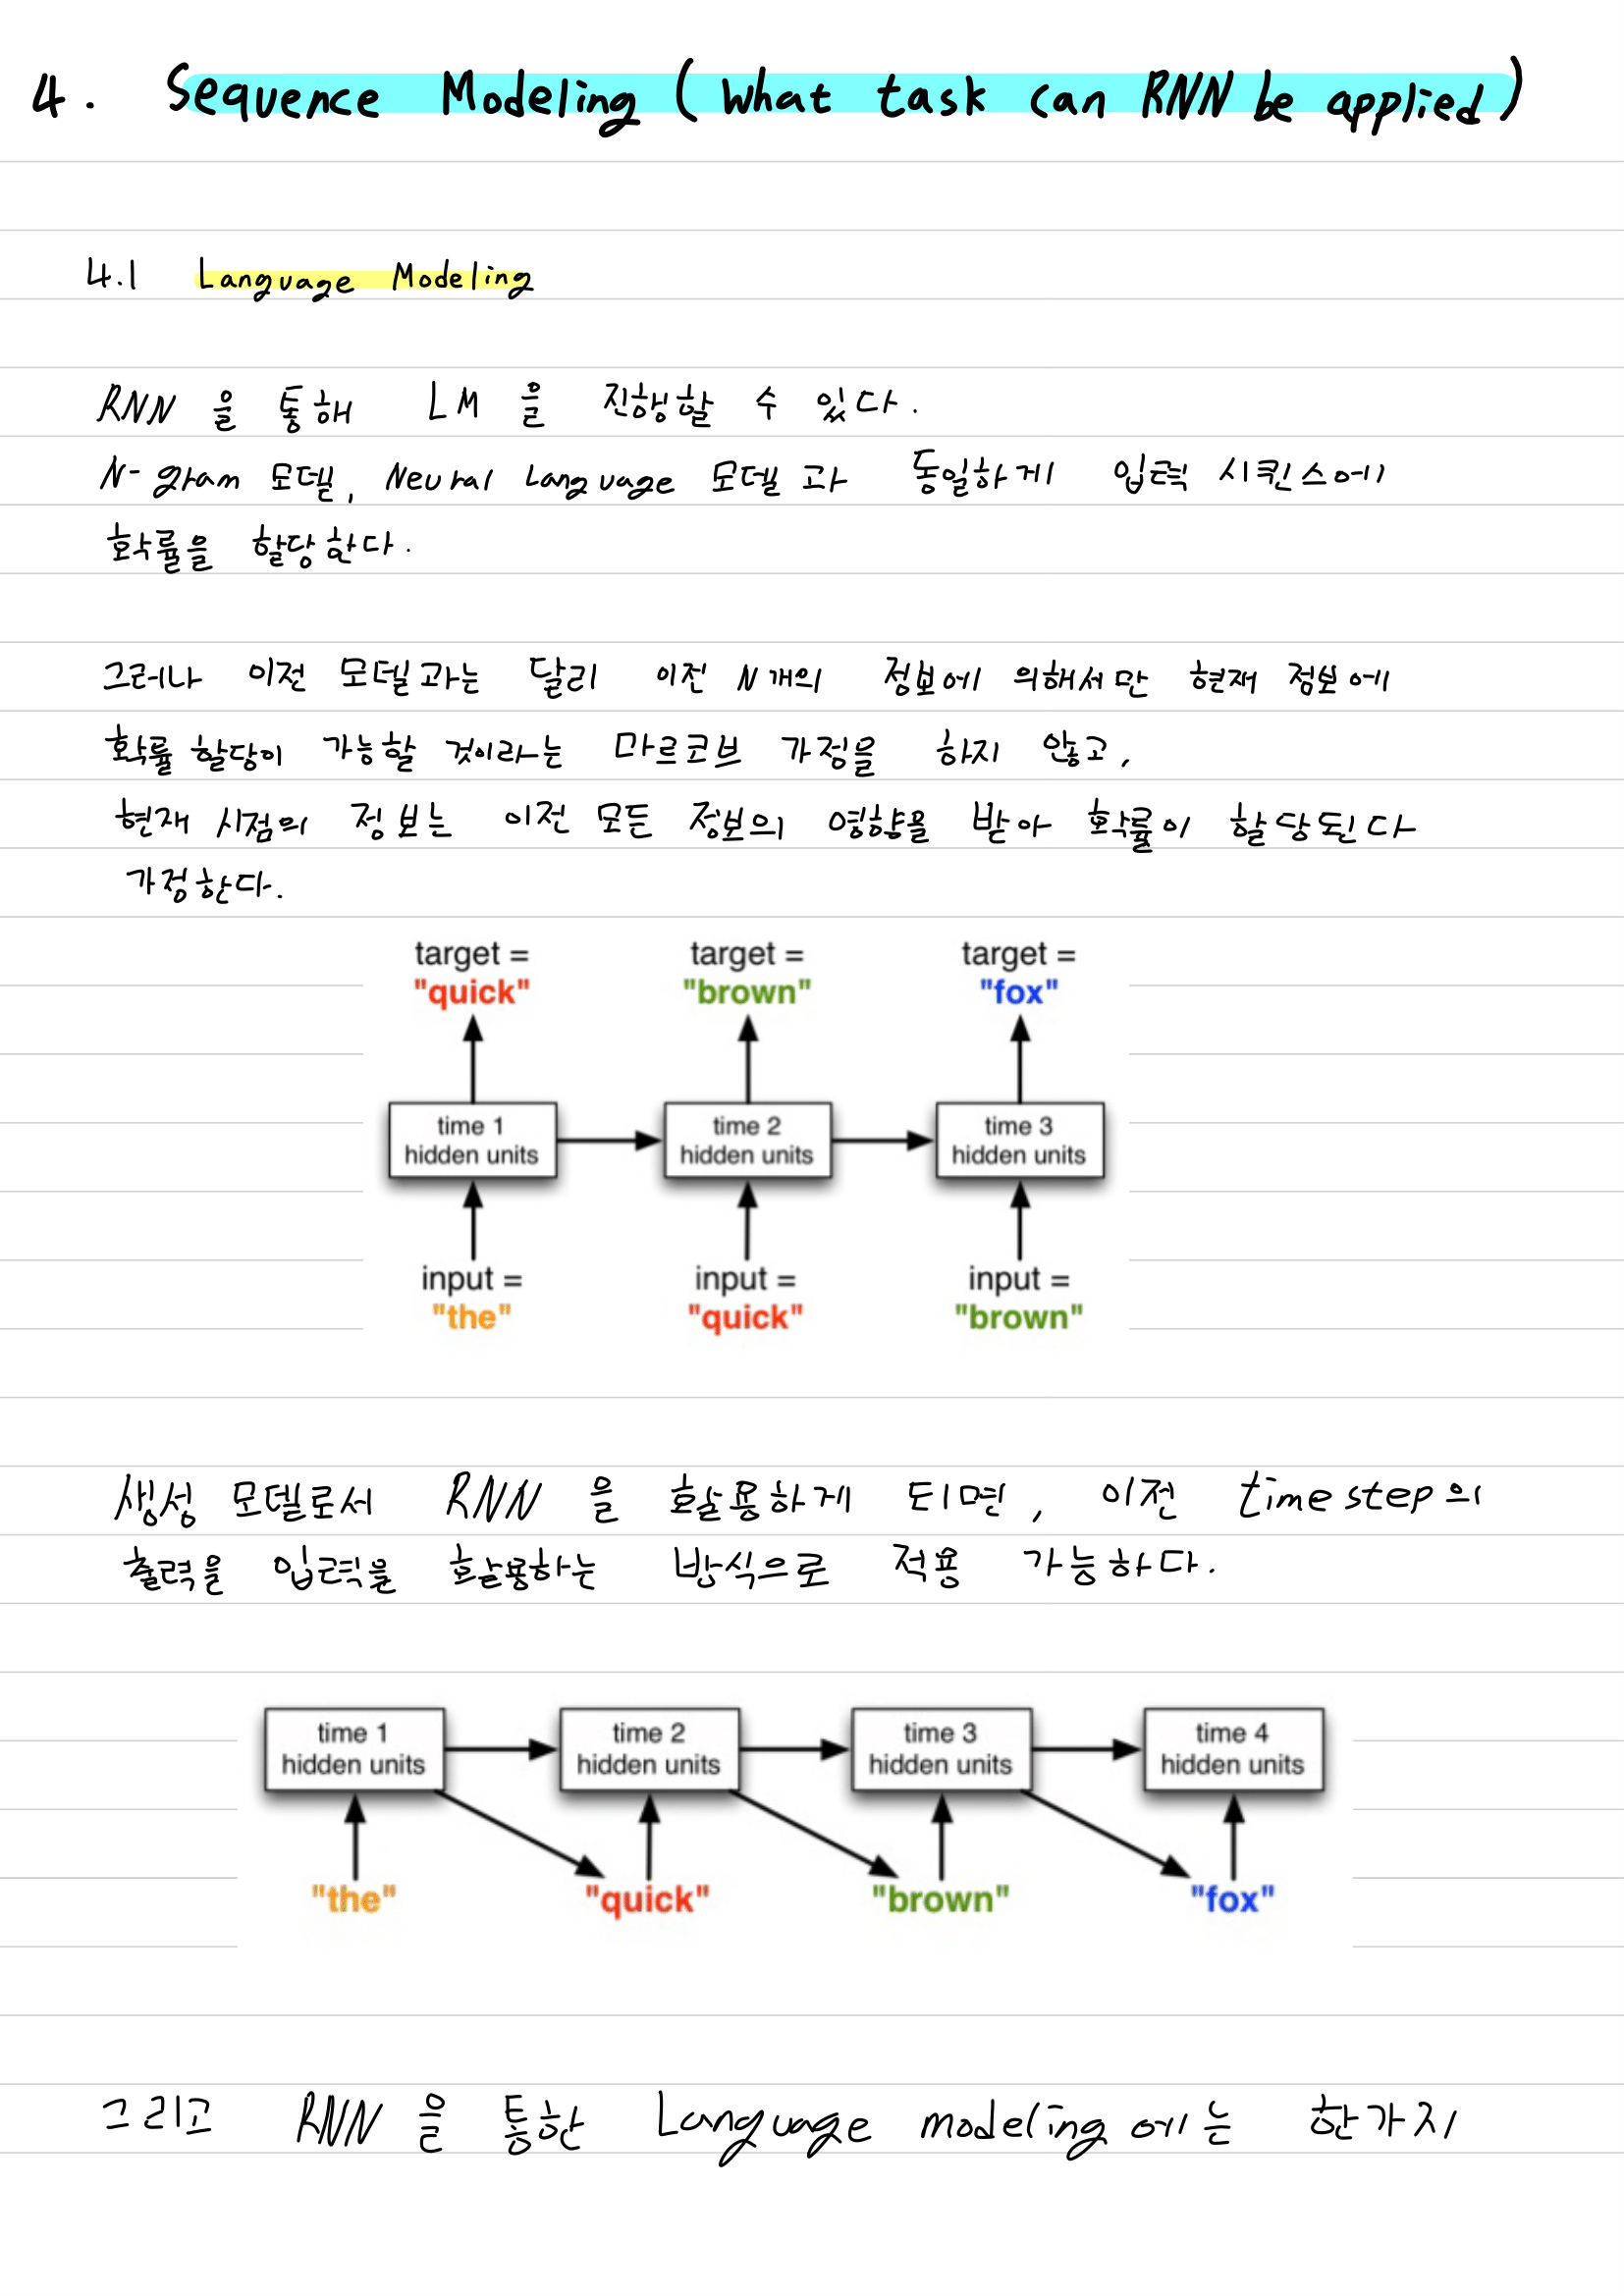 4. Sequence Modeling (What task can RNN be applied)
4.1 Language Modeling
RNN을 통해 LM을 진행할 수 있다.
N-gram 모델, Neural Language 모델과 동일하게 입력 시퀀스에
확률을 할당한다.
그러나 이전 모델과는 달리 이전 N개의 정보에 의해서만 현재 정보에
확률 할당이 가능할 것이라는 마르코브 가정을 하지 않고,
현재 시점의 정보는 이전 모든 정보의 영향을 받아 확률이 할당된다
가정한다.
target = target = target =
"quick" "brown" "fox"
time 1 time 2 time 3
hidden units hidden units hidden units
input = input = input =
"the" "quick" "brown"
생성 모델로서 RNN을 활용하게 되면, 이전 timestep의
출력을 입력을 활용하는 방식으로 적용 가능하다.
time 1 time 2 time 3 time 4
hidden units hidden units hidden units hidden units
"the" "quick" "brown" "fox"
그리고 RNN을 통한 Language modeling에는 한가지